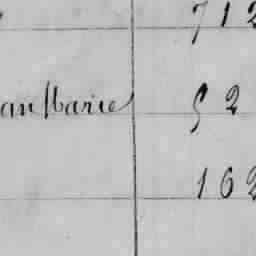 712
an Marie 52
162